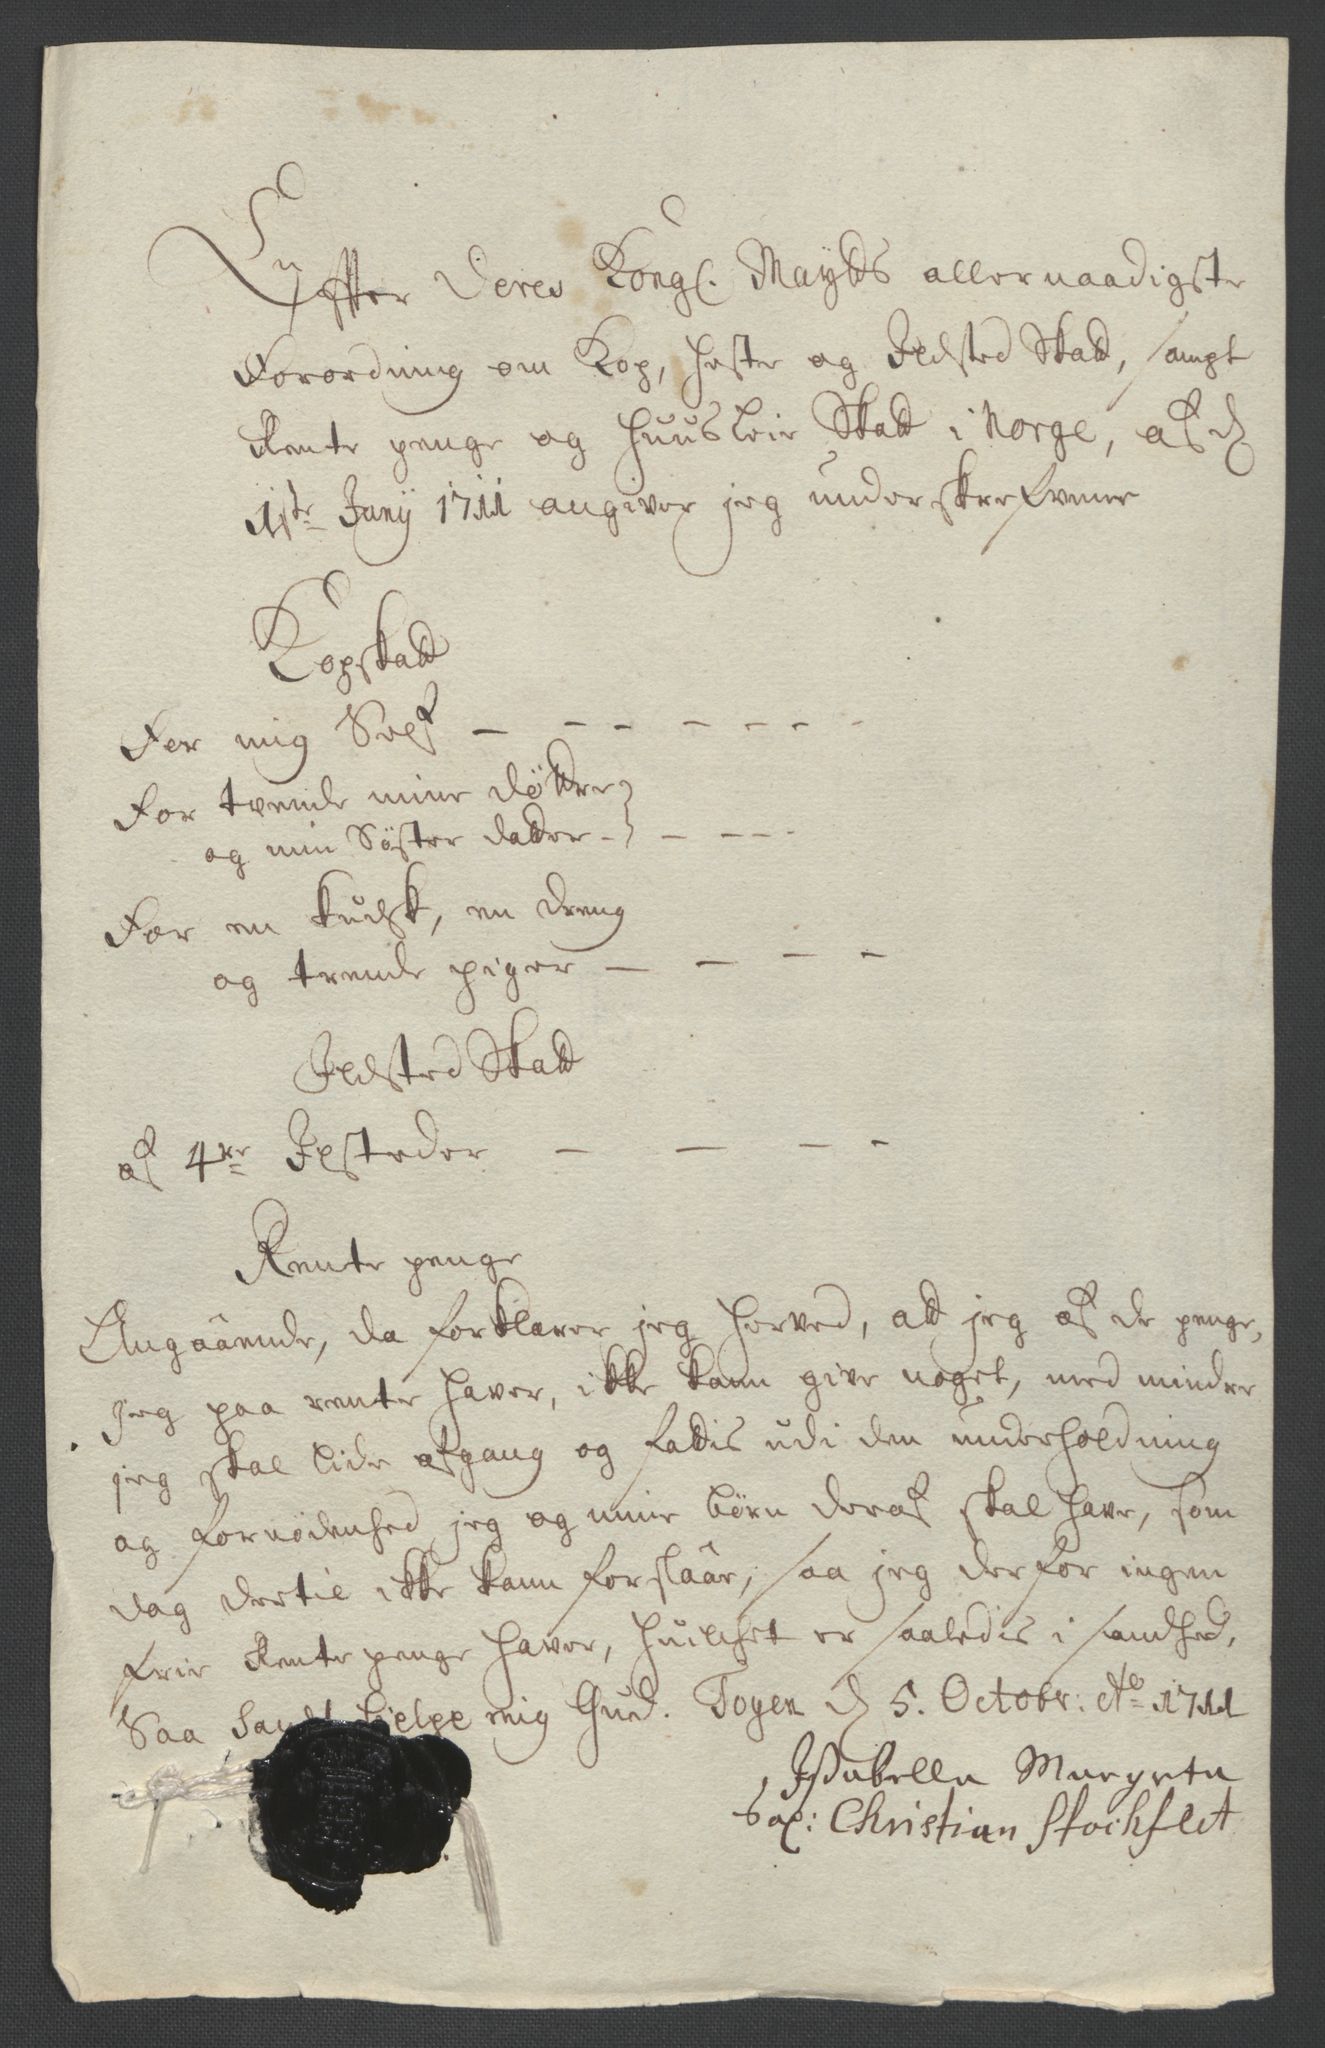 Effter Deres Kongl. Maytts allernaadigste
Forordning om Kop, heste og Ildsted Skatt, sampt
Rente penge og huusleie Skatt i Norge, af d
1ste Junij 1711 angiver jeg underskrefvene
Kopskatt
For mig Self — — — — — — —
For tvende mine døttre
og min Søster datter — — — — —
For en Kudsk, en dreng
og trende piger — — — —
Ildsted Skatt
af 4re Ilsteder — — — —
Rente penge
Angaaende, da forklarer jeg herved, att jeg af de penge,
jeg paa rente haver, ikke kann give noget, med mindre
jeg skal lide afgang og fattis udi den underholdning
og fornødenhed jeg og mine børn deraf skal have, som
dog dertil ikke kann forslaar, saa jeg derfor ingen
frie Rente penge haver, huilchet er saaledis i sandhed,
Saa Sandt hielpe mig Gud. Toyen d 5. Octobr: Ao 1711
Issabella Margreta
Sal: Christian Stockflet